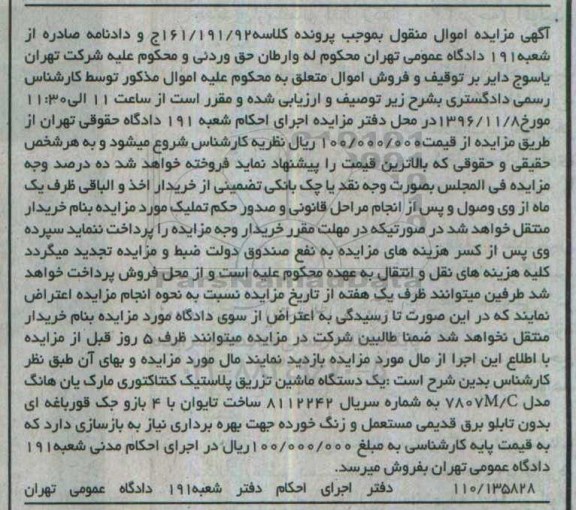 آگهی مزایده اموال منقول بموجب پرونده کلاسه۱۶۱/۱۹۱/۹۲ج و دادنامه صادره از
شعبه۱۹۱ دادگاه عمومی تهران محکوم له وارطان حق وردنی و محکوم علیه شرکت تهران
یاسوج دایر بر توقیف و فروش اموال متعلق به محکوم علیه اموال مذکور توسط کارشناس
رسمی دادگستری بشرح زیر توصیف و ارزیابی شده و مقرر است از ساعت ۱۱ الی۱۱:۳۰
مورخ۱۳۹۶/۱۱/۸در محل دفتر مزایده اجرای احکام شعبه ۱۹۱ دادگاه حقوقی تهران از
طریق مزایده از قیمت۱۰۰/۰۰۰/۰۰۰ ریال نظریه کارشناس شروع میشود و به هرشخص
حقیقی و حقوقی که بالاترین قیمت را پیشنهاد نماید فروخته خواهد شد ده درصد وجه
مزایده فی المجلس بصورت وجه نقد یا چک بانکی تضمینی از خریدار اخذ و الباقی ظرف یک
ماه از وی وصول و پس از انجام مراحل قانونی و صدور حکم تملیک مورد مزایده بنام خریدار
منتقل خواهد شد در صورتیکه در مهلت مقرر خریدار وجه مزایده را پرداخت ننماید سپرده
وی پس از کسر هزینه های مزایده به نفع صندوق دولت ضبط و مزایده تجدید میگردد
کلیه هزینه های نقل و انتقال به عهده محکوم علیه است و از محل فروش پرداخت خواهد
شد طرفین میتوانند ظرف یک هفته از تاریخ مزایده نسبت به نحوه انجام مزایده اعتراض
نمایند که در این صورت تا رسیدگی به اعتراض از سوی دادگاه مورد مزایده بنام خریدار
منتقل نخواهد شد ضمنا طالبین شرکت در مزایده میتوانند ظرف ۵ روز قبل از مزایده
با اطلاع این اجرا از مال مورد مزایده بازدید نمایند مال مورد مزایده و بهای آن طبق نظر
کارشناس بدین شرح است :یک دستگاه ماشین تزریق پلاستیک کنتاکتوری مارک یان هانگ
مدل ۷۸۰۷M/C به شماره سریال ۸۱۱۲۲۴۲ ساخت تایوان با ۴ بازو جک قورباغه ای
بدون تابلو برق قدیمی مستعمل و زنگ خورده جهت بهره برداری نیاز به بازسازی دارد که
به قیمت پایه کارشناسی به مبلغ ۱۰۰/۰۰۰/۰۰۰ریال در اجرای احکام مدنی شعبه۱۹۱
دادگاه عمومی تهران بفروش میرسد.
۱۱۰/۱۳۵۸۲۸ دفتر اجرای احکام دفتر شعبه۱۹۱ دادگاه عمومی تهران
ParsNamadData